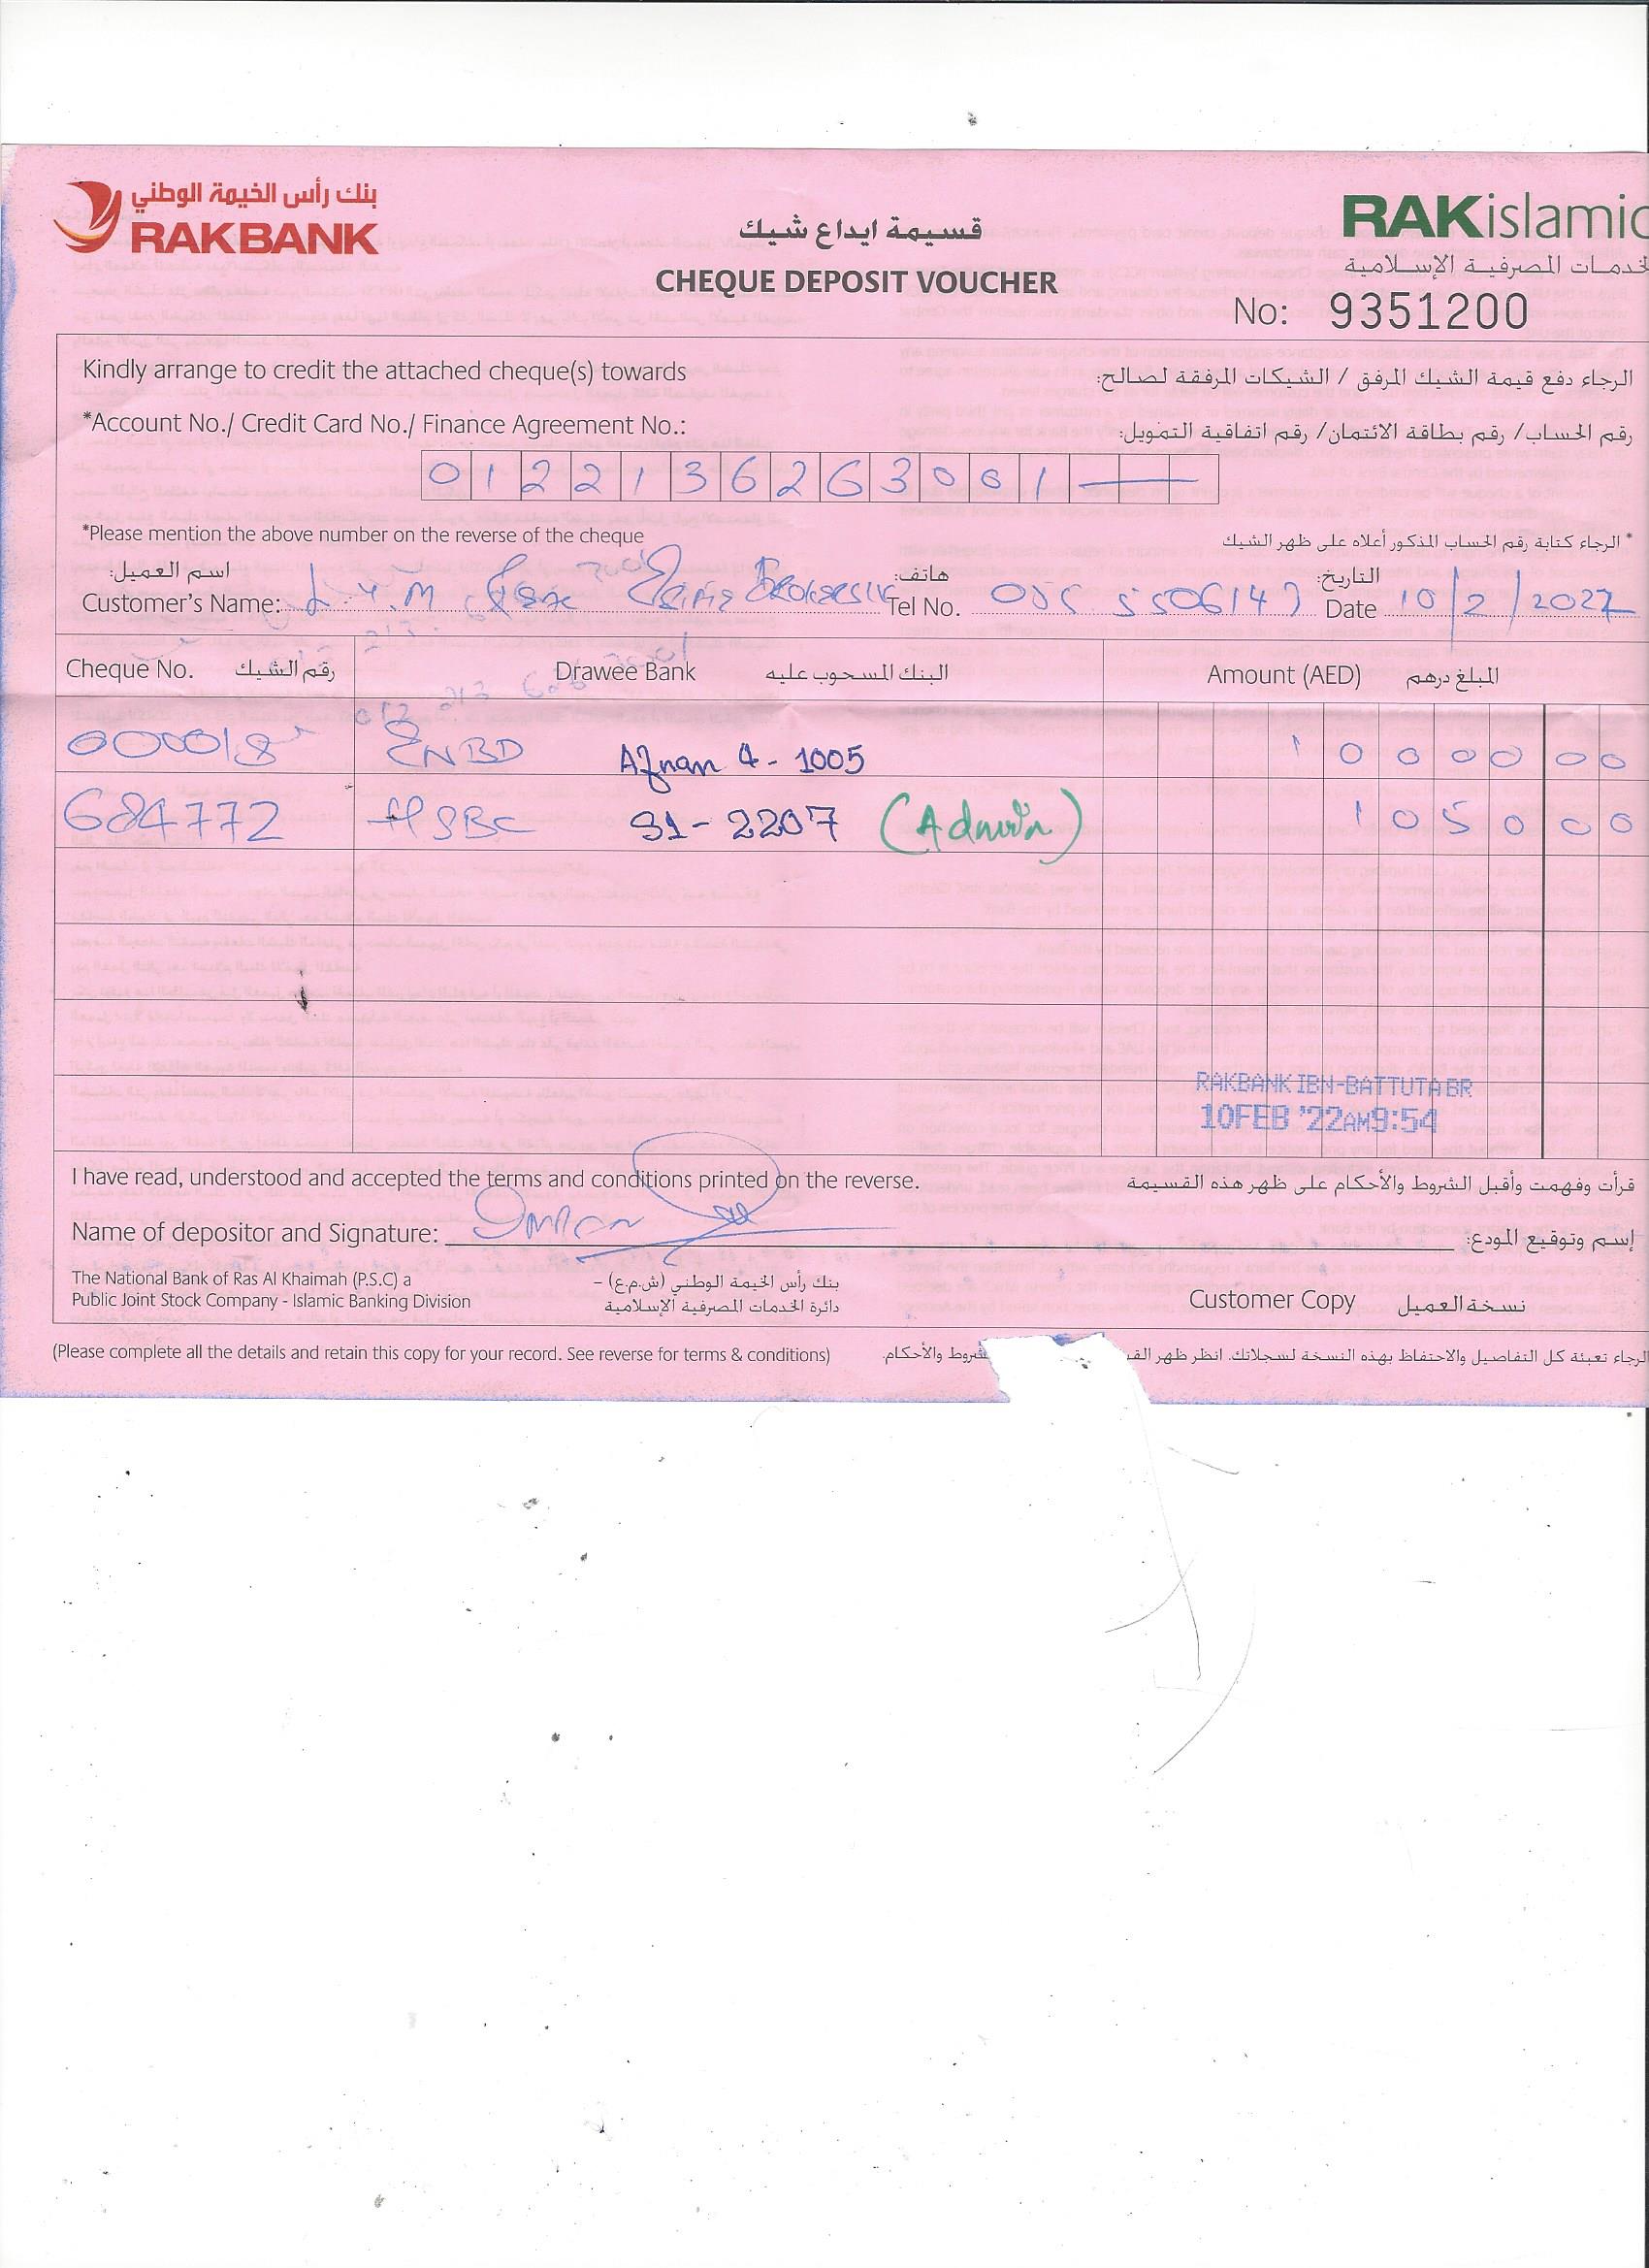 بنك رأس الخيمة الوطني
RAKBANK
قسيمة ايداع شيك
CHEQUE DEPOSIT VOUCHER
RAKislamic
خدمات المصرفية الإسلامية
No: 9351200
Kindly arrange to credit the attached cheque(s) towards
الرجاء دفع قيمة الشيك المرفق / الشيكات المرفقة لصالح:
*Account No./ Credit Card No./ Finance Agreement No.:
رقم الحساب/ رقم بطاقة الائتمان/ رقم اتفاقية التمويل:
0122136263001
*Please mention the above number on the reverse of the cheque
* الرجاء كتابة رقم الحساب المذكور أعلاه على ظهر الشيك
اسم العميل: هاتف: التاريخ:
Customer's Name: Tel No. 055 5506147 Date 10/2/2022
Cheque No. رقم الشيك Drawee Bank البنك المسحوب عليه Amount (AED) المبلغ درهم
000018 ENBD Afnan 4 - 1005 10000 00
684772 HSBC S1 - 2207 (Admin) 1050 00
RAKBANK IBN-BATTUTA BR
10FEB '22AM9:54
I have read, understood and accepted the terms and conditions printed on the reverse.
قرأت وفهمت وأقبل الشروط والأحكام على ظهر هذه القسيمة
Name of depositor and Signature: Imran
إسم وتوقيع المودع:
The National Bank of Ras Al Khaimah (P.S.C) a
Public Joint Stock Company - Islamic Banking Division
بنك رأس الخيمة الوطني (ش.م.ع) –
دائرة الخدمات المصرفية الإسلامية
Customer Copy نسخة العميل
(Please complete all the details and retain this copy for your record. See reverse for terms & conditions)
الرجاء تعبئة كل التفاصيل والاحتفاظ بهذه النسخة لسجلاتك. انظر ظهر الق شروط والأحكام.